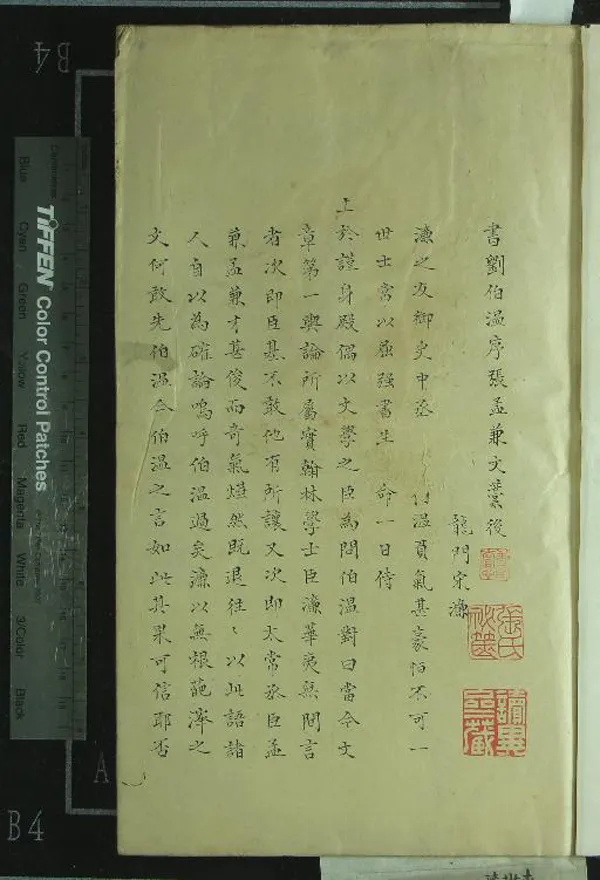 書劉伯溫序張孟兼文藁後
龍門宋濂
濂之友御史中丞 伯溫負氣甚豪怕不可一
世士常以屈强書生 命一日侍
上於謹身殿偶以文學之臣為問伯溫對曰當今文
章第一輿論所屬實翰林學士臣濂華夷無間言
者次即臣基不敢他有所讓又次即太常丞臣孟
兼孟兼才甚俊而奇氣燁然既退往、以此語諸
人自以為確論嗚呼伯溫過矣濂以無根葩澤之
文何敢先伯溫今伯溫之言如此其果可信耶否
張氏
秘笈
讀異
齋藏
B4
A
B4
TIFFEN Color Control Patches
Blue Cyan Green Yellow Red Magenta White 3/Color Black